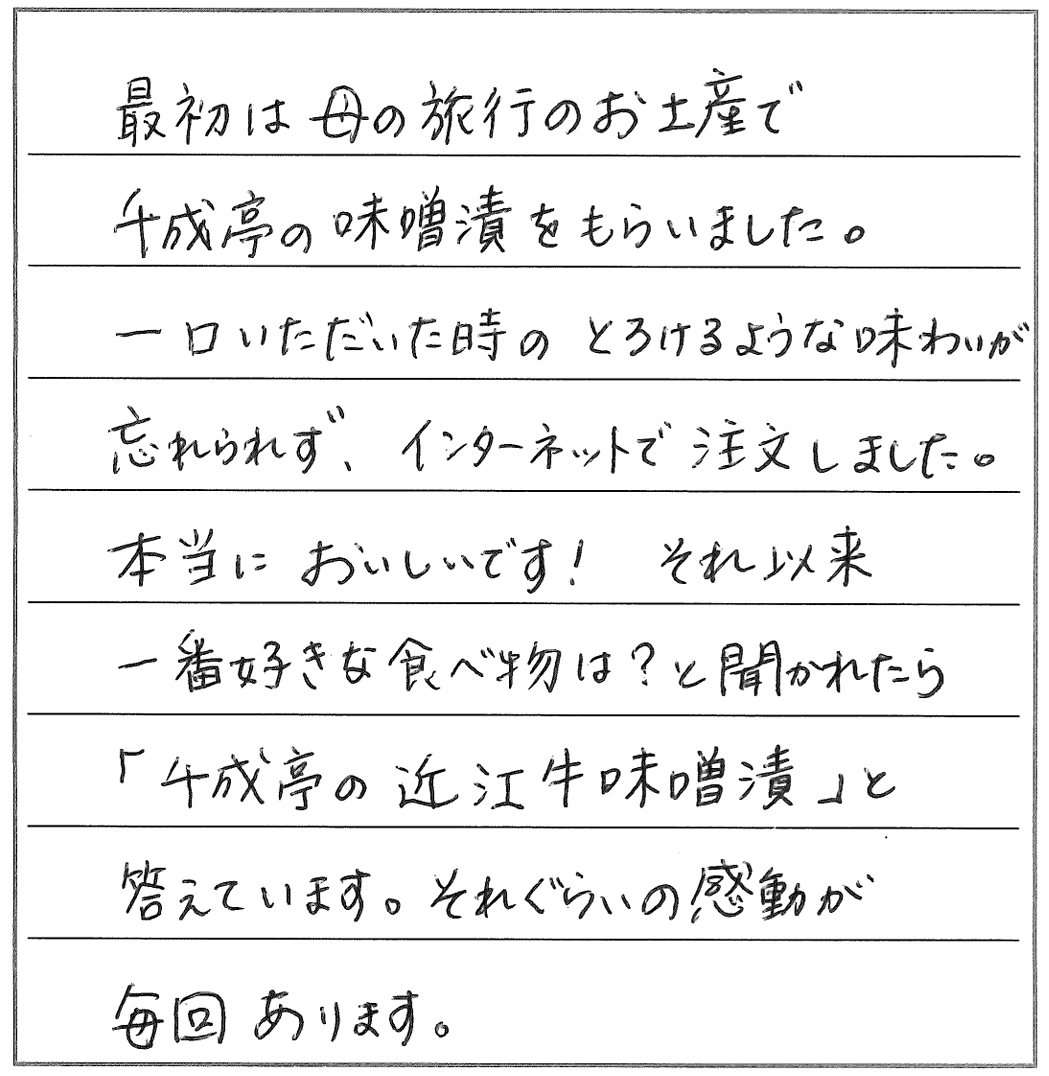 最初は母の旅行のお土産で
千成亭の味噌漬をもらいました。
一口いただいた時のとろけるような味わいが
忘れられず、インターネットで注文しました。
本当においしいです！　それ以来
一番好きな食べ物は？と聞かれたら
「千成亭の近江牛味噌漬」と
答えています。それぐらいの感動が
毎回あります。